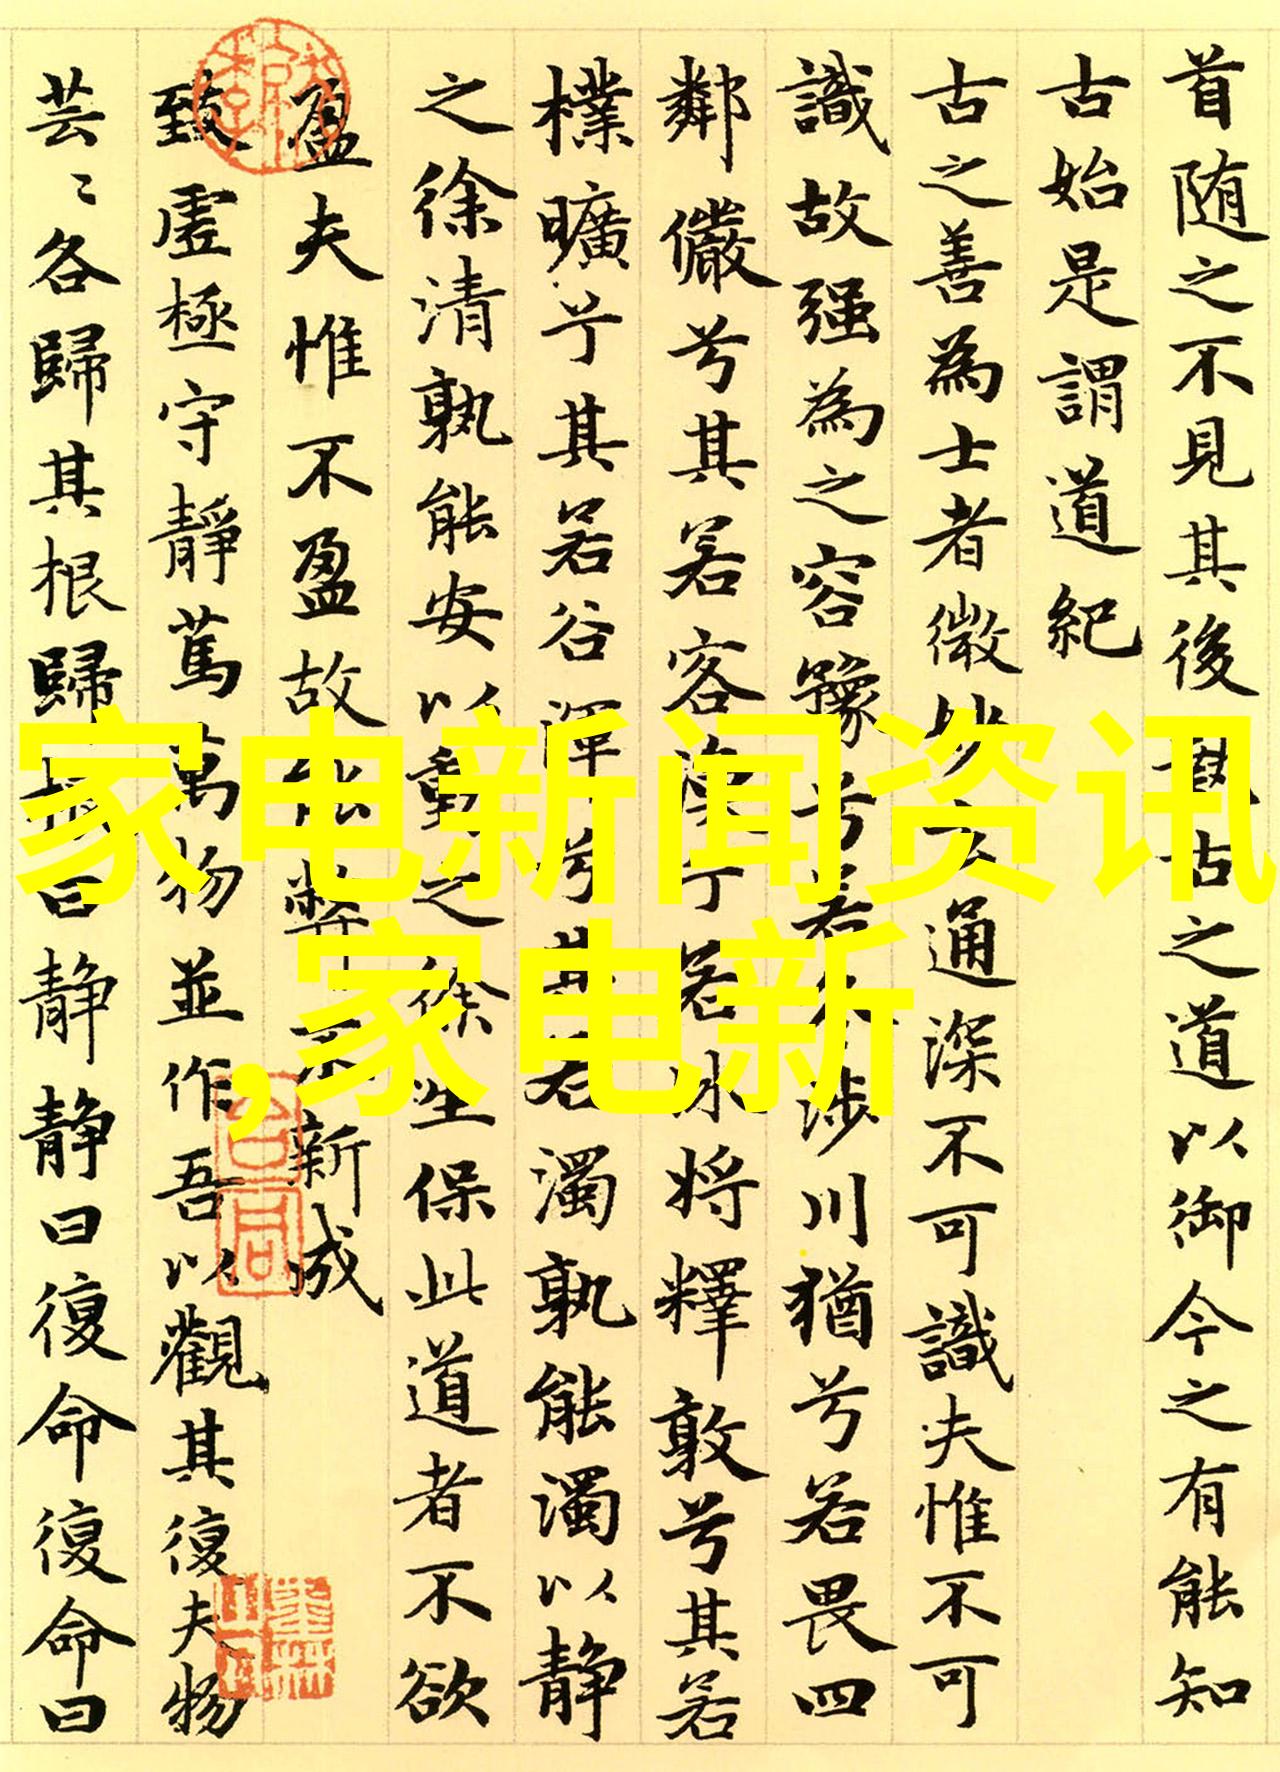 首随之不见其後執古之道以御今之有能知
古始是謂道紀
古之善為士者微妙玄通深不可識夫惟不可
識故强為之容豫兮若冬涉川猶兮若畏四
鄰儼兮其若客渙兮若冰将釋敦兮其若
樸曠兮其若谷渾兮其若濁孰能濁以静
之徐清孰能安以動之徐生保此道者不欲
盈夫惟不盈故能弊不新成
致虛極守靜篤萬物並作吾以觀其復夫物
芸〻各歸其根歸根曰静静曰復命復命曰
家电新闻资讯
,家电新